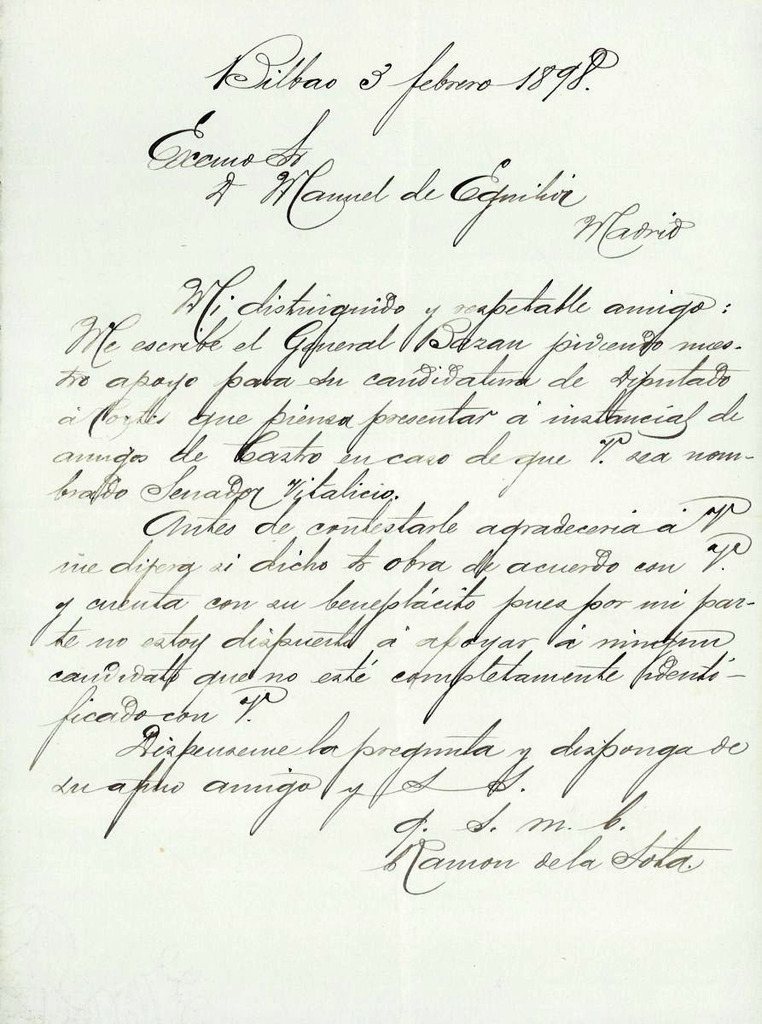 Bilbao 3 febrero 1898.
Excmo Sr
D Manuel de Eguilior
Madrid
Mi distinguido y respetable amigo:
Me escribe el General Bazan pidiendo nues-
tro apoyo para su candidatura de Diputado
á Cortes que piensa presentar á instancias de
amigos de Castro en caso de que V. sea nom-
brado Senador Vitalicio.
Antes de contestarle agradeceria á V
me dijera si dicho Sr obra de acuerdo con V.
y cuenta con su beneplácito pues por mi par-
te no estoy dispuesto á apoyar á ningun
candidato que no esté completamente identi-
ficado con V.
Dispenseme la pregunta y disponga de
su afmo amigo y S S.
q. s. m. b.
Ramon de la Sota.